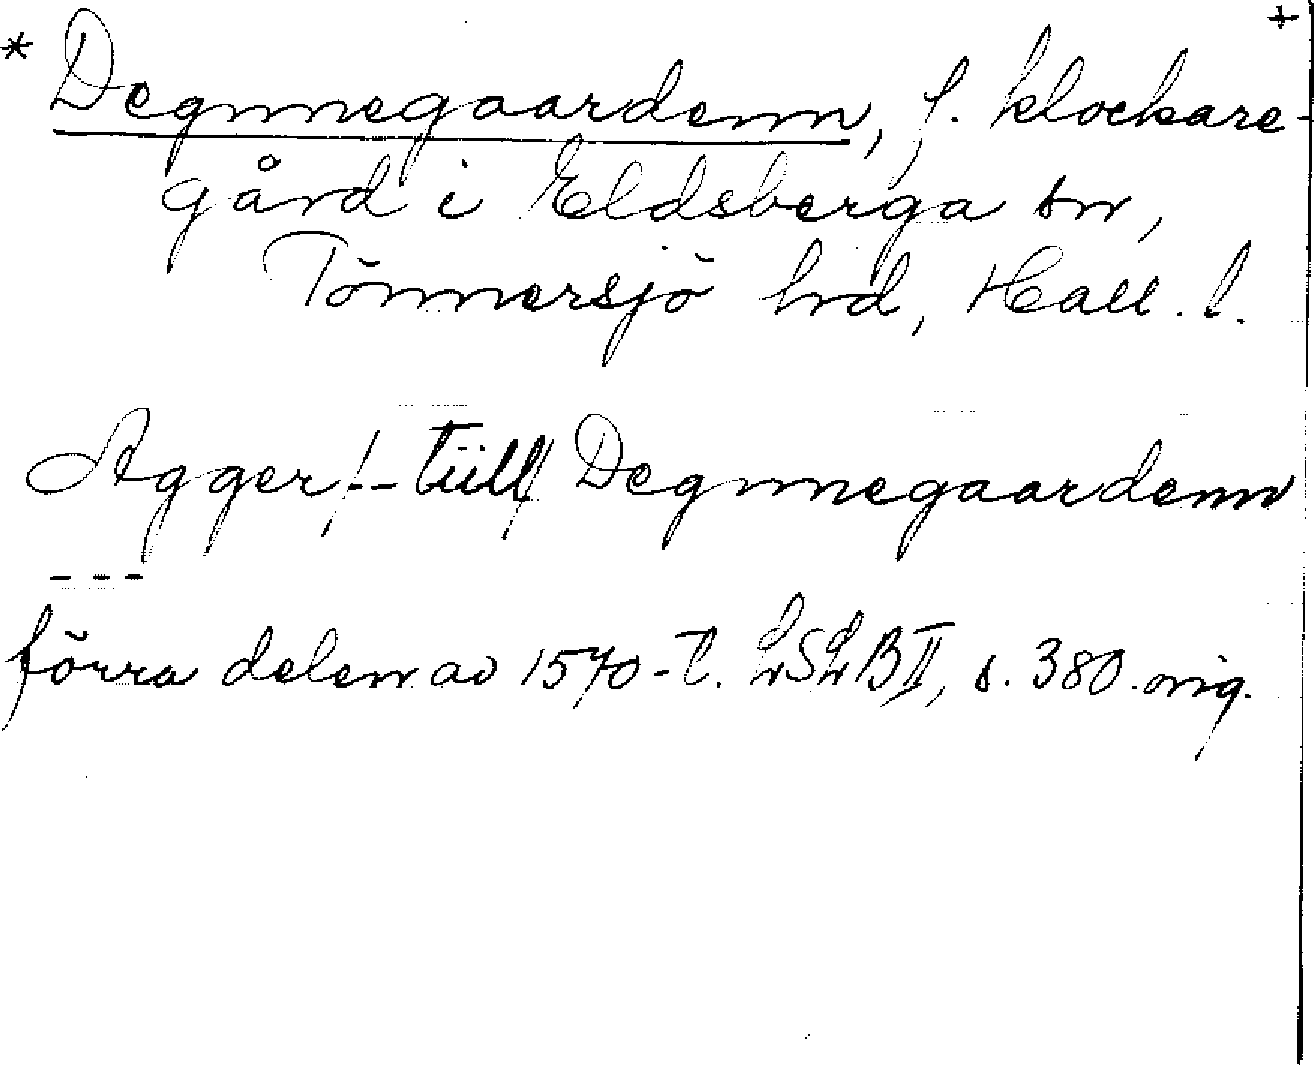 * Degnnegaardenn, f. klockare- +
gård i Eldsberga sn,
Tönnersjö hd, Hall. l.
Agger /-- tiill/ Degnnegaardenn
---
förra delen av 1570-t. LSLB II, s. 380. orig.